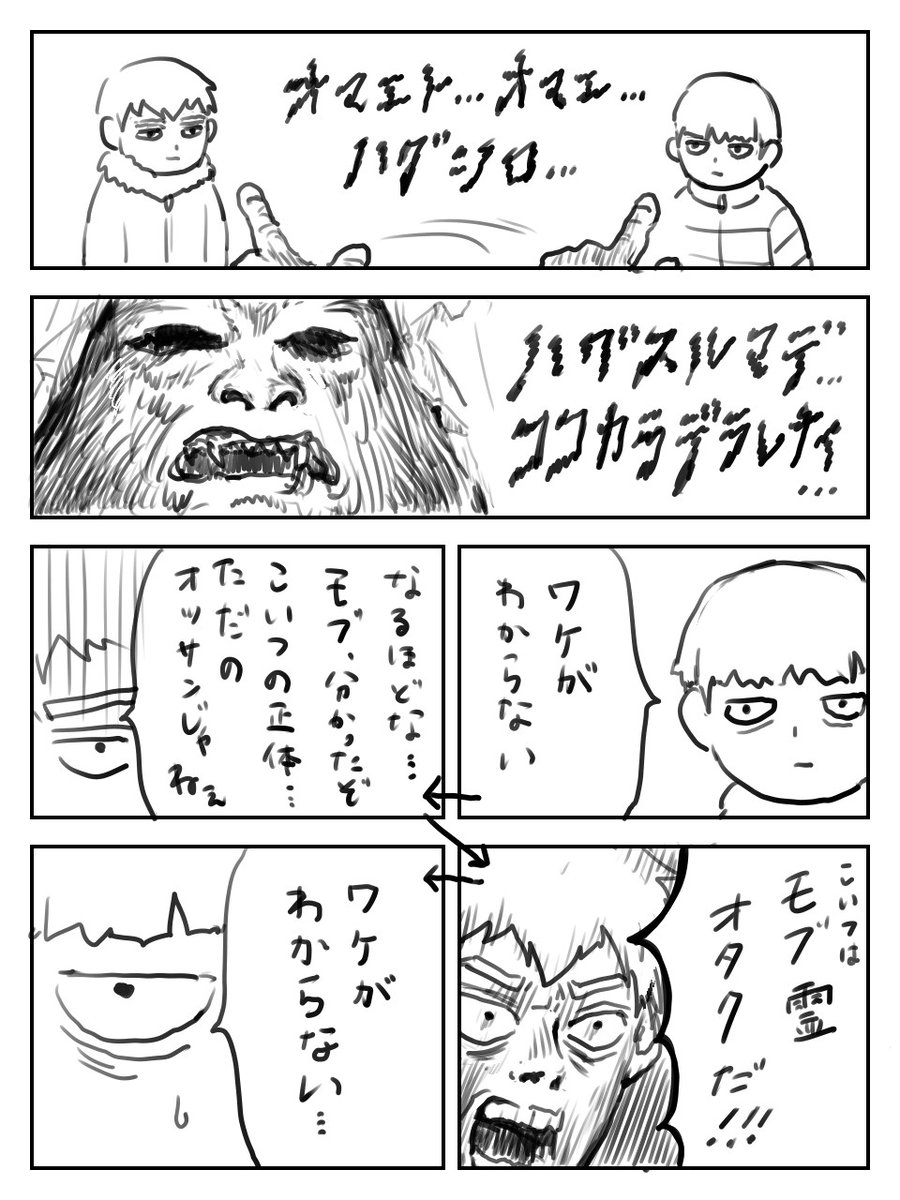 オマエト…オマエ…
ハグシロ…
ハグスルマデ…
ココカラデラレナイ
…
ワケが
わからない
なるほどな…
モブ、分かったぞ
こいつの正体…
ただの
オッサンじゃ
ねぇ
こいつは
モブ霊
オタクだ!!!
ワケが
わからない…